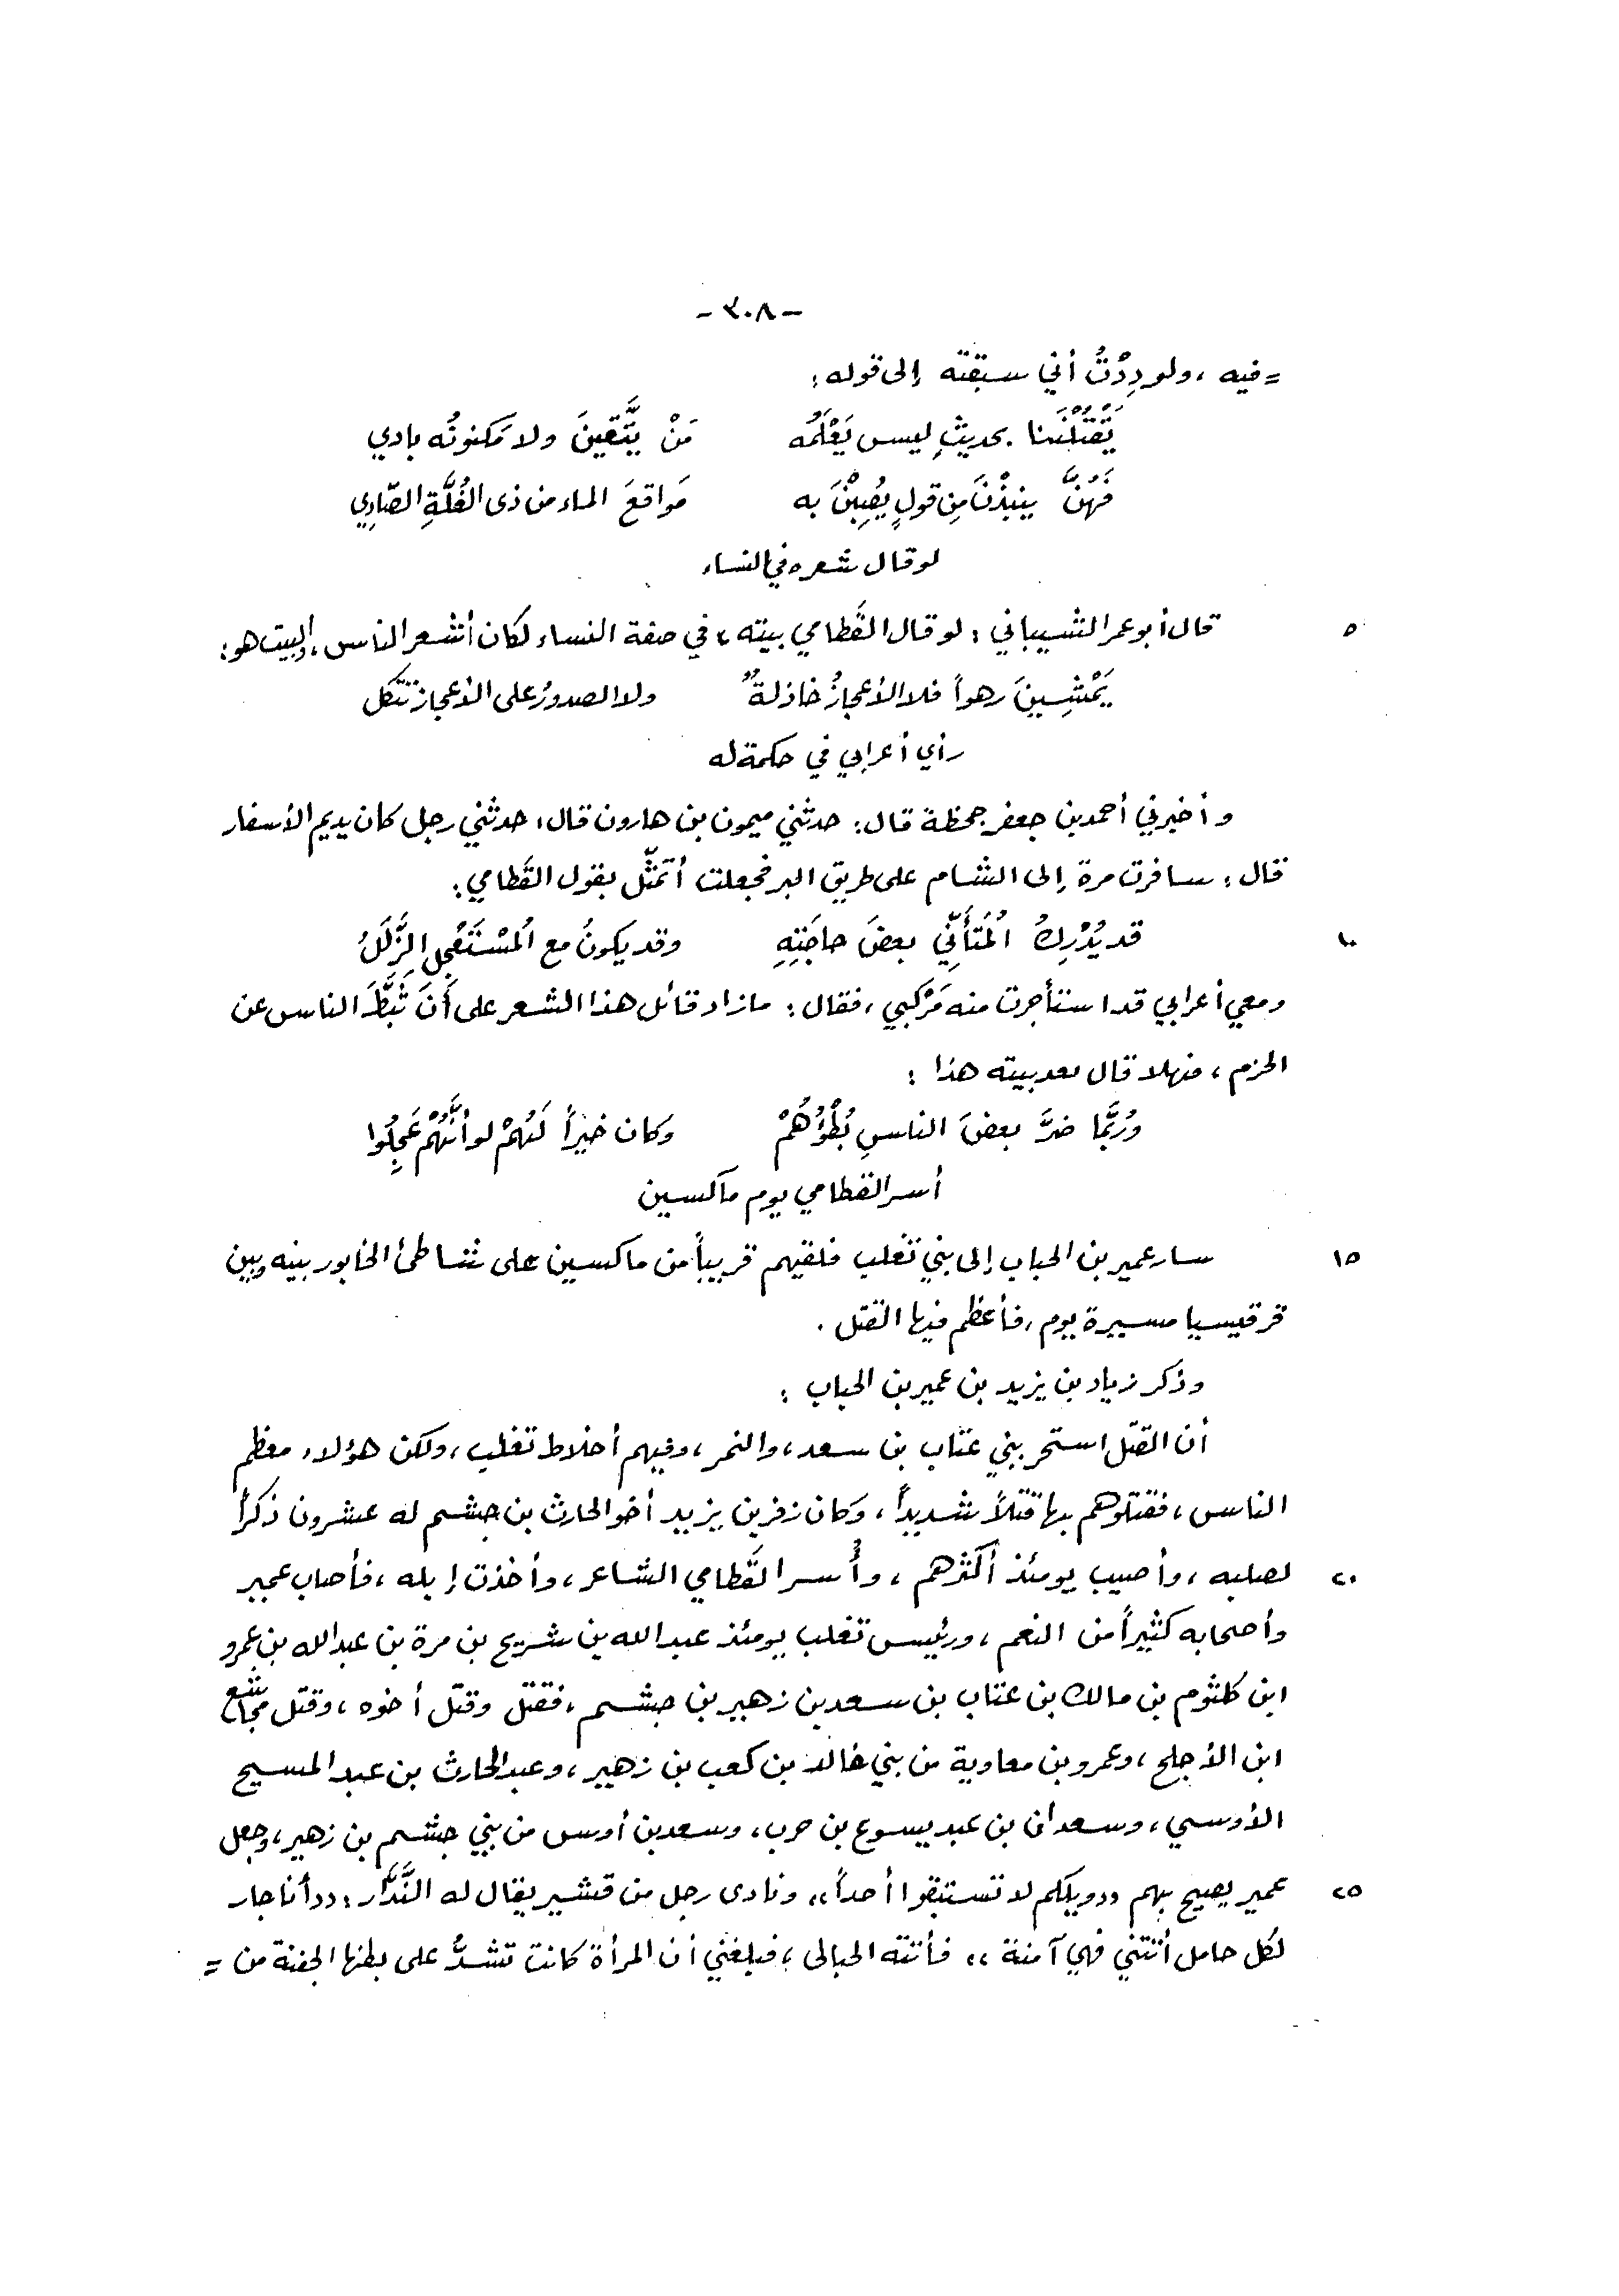 - ٣٠٨ -
= فيه ، ولودِدْتُ أني سبقته إلى قوله :
يَقْتُلْنَنا بحديثٍ ليس يَعْلَمُه مَنْ يَتَّقينَ ولا مَكنونُه بادي
فَهُنَّ ينبِذْنَ مِن قولٍ يُصِبْنَ به مَواقعَ الماء من ذي الغُلَّةِ الصّادِي
لو قال شعره في النساء
٥ قال أبو عمر الشيباني : لو قال القَطامي بيته ، في صفة النساء لكان أشعر الناس ، والبيت هو :
يَمْشِينَ رهواً فلا الأعجازُ خاذلةٌ ولا الصدورُ على الأعجاز تتّكل
رأي أعرابي في حكمة له
وأخبرني أحمد بن جعفر جحظة قال : حدثني ميمون بن هارون قال : حدثني رجل كان يديم الأسفار
قال : سافرت مرة إلى الشام على طريق البر فجعلت أتمثّل بقول القَطامي :
١٠ قد يُدْرِكُ المُتَأَنِّي بعضَ حاجَتِهِ وقد يكونُ مع المُسْتَعْجِلِ الزَّلَلُ
ومعي أعرابي قد استأجرت منه مَرْكبي ، فقال : ما زاد قائل هذا الشعر على أَنَ ثَبَّطَ الناس عن
الحزم ، فهلا قال بعد بيته هذا :
ورُبَّما ضرَّ بعضَ الناسِ بُطْؤُهُمْ وكان خيراً لَهُمْ لو أَنَّهُمْ عَجِلُوا
أسر القطامي يوم ماكسين
١٥ سار عمير بن الحباب إلى بني تغلب فلقيهم قريباً من ماكسين على شاطئ الخابور بينه وبين
قرقيسيا مسيرة يوم ، فأعظم فيها القتل .
وذكر زياد بن يزيد بن عمير بن الحباب :
أن القتل استحر ببني عتاب بن سعد ، والنمر ، وفيهم أخلاط تغلب ، ولكن هؤلاء معظم
الناس ، فقتلوهم بها قتلاً شديداً ، وكان زفر بن يزيد أخو الحارث بن جشم له عشرون ذكراً
٢٠ لصلبه ، وأصيب يومئذ أكثرهم ، وأُسر القَطامي الشاعر ، وأخذت إبله ، فأصاب عمير
وأصحابه كثيراً من النعم ، ورئيس تغلب يومئذ عبد الله بن شريح بن مرة بن عبد الله بن عمرو
ابن كلثوم بن مالك بن عتاب بن سعد بن زهير بن جشم ، فقتل وقتل أخوه ، وقتل مجاشع
ابن الأجلح ، وعمرو بن معاوية من بني خالد بن كعب بن زهير ، وعبد الحارث بن عبد المسيح
الأوسي ، وسعدان بن عبد يسوع بن حرب ، وسعد بن أوس من بني جشم بن زهير ، وجعل
٢٥ عمير يصيح بهم ,, ويلكم لا تستبقوا أحداً ،، ونادى رجل من قشير يقال له النَّدَّار : ,, أنا جار
لكل حامل أتتني فهي آمنة ،، فأتته الحبالى ؛ فبلغني أن المرأة كانت تشدُّ على بطنها الجفنة من =